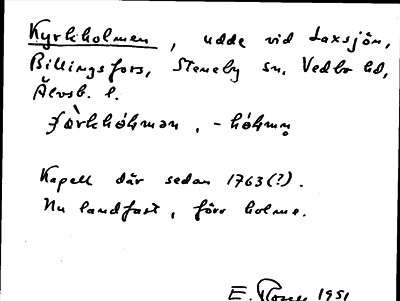 Kyrkholmen, udde vid Laxsjön,
Billingsfors, Steneby sn. Vedbo hd,
Älvsb. l.
-hóḷmn̥
Kapell där sedan 1763(?).
Nu landfast, förr holme.
E. 1951